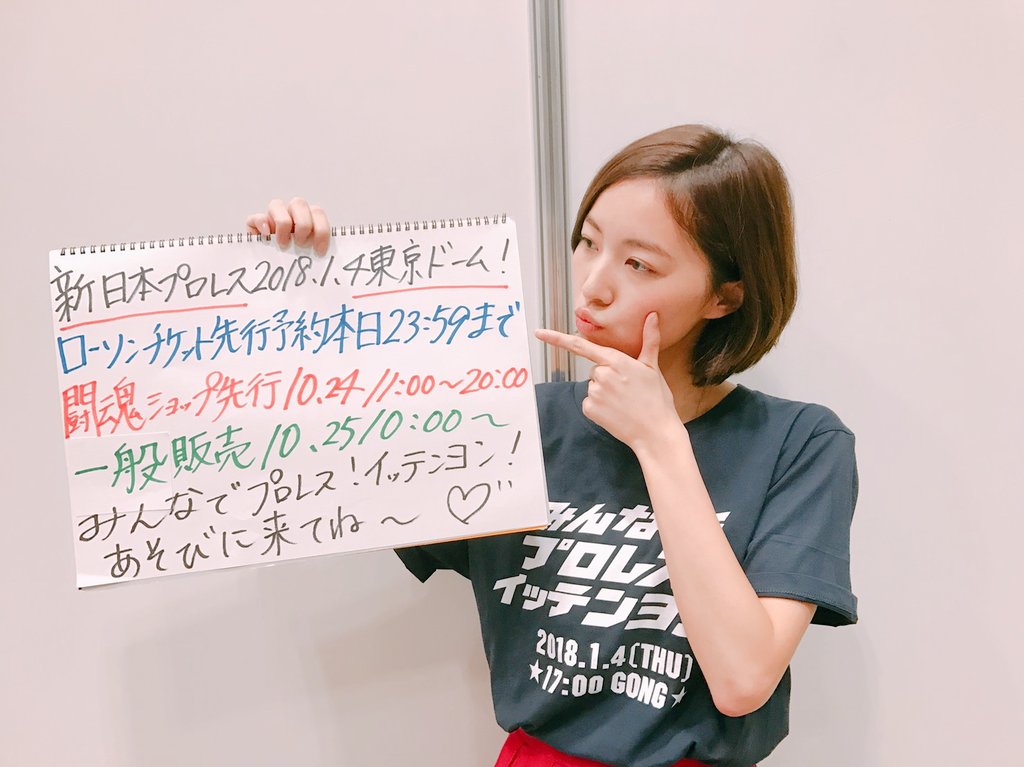 新日本プロレス2018.1.4東京ドーム!
ローソンチケット先行予約本日23:59まで
闘魂ショップ先行10.24 11:00~20:00
一般販売10.25 10:00~
みんなでプロレス!イッテンヨン!
あそびに来てね~♡
みんなで
プロレス
イッテンヨン
2018.1.4(THU)
★17:00 GONG★